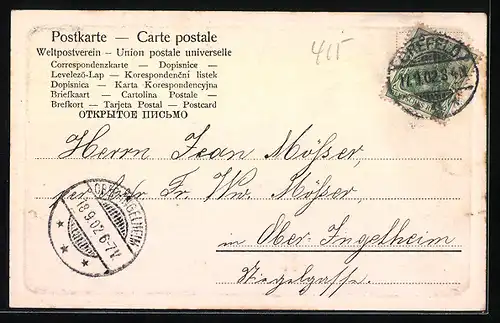 Postkarte — Carte postale
Weltpostverein - Union postale universelle
Correspondenzkarte — Dopisnice —
Levelező-Lap — Korespondenční listek
Dopisnica — Karta Korespondencyjna
Briefkaart — Cartolina Postale —
Brefkort - Tarjeta Postal - Postcard
ОТКРЫТОЕ ПИСЬМО
415
CREFELD
Herrn Jean Mösser,
Fr. Ww. Mösser,
OBER-INGELHEIM
18.9.02.6-7V.
in Ober-Ingelheim
Stiegelgasse.